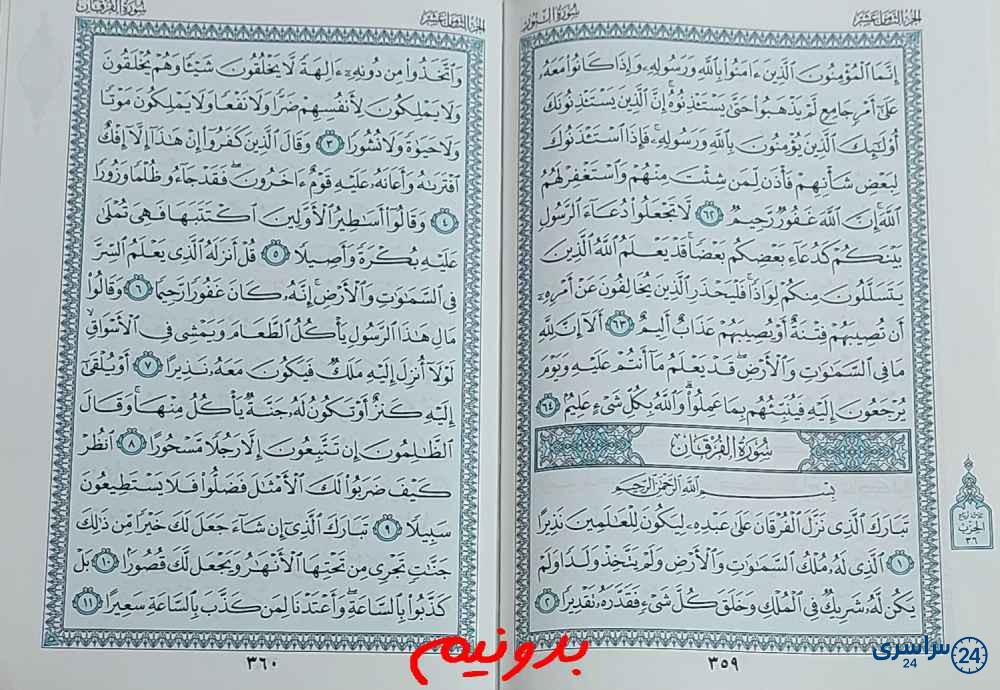 الجزء الثامن عشر
سورة النور
إِنَّمَا الْمُؤْمِنُونَ الَّذِينَ ءَامَنُوا بِاللَّهِ وَرَسُولِهِ وَإِذَا كَانُوا مَعَهُ
عَلَىٰ أَمْرٍ جَامِعٍ لَّمْ يَذْهَبُوا حَتَّىٰ يَسْتَـْٔذِنُوهُ إِنَّ الَّذِينَ يَسْتَـْٔذِنُونَكَ
أُولَٰئِكَ الَّذِينَ يُؤْمِنُونَ بِاللَّهِ وَرَسُولِهِ فَإِذَا اسْتَـْٔذَنُوكَ
لِبَعْضِ شَأْنِهِمْ فَأْذَن لِّمَن شِئْتَ مِنْهُمْ وَاسْتَغْفِرْ لَهُمُ
اللَّهَ إِنَّ اللَّهَ غَفُورٌ رَّحِيمٌ ٦٢ لَّا تَجْعَلُوا دُعَاءَ الرَّسُولِ
بَيْنَكُمْ كَدُعَاءِ بَعْضِكُم بَعْضًا قَدْ يَعْلَمُ اللَّهُ الَّذِينَ
يَتَسَلَّلُونَ مِنكُمْ لِوَاذًا فَلْيَحْذَرِ الَّذِينَ يُخَالِفُونَ عَنْ أَمْرِهِ
أَن تُصِيبَهُمْ فِتْنَةٌ أَوْ يُصِيبَهُمْ عَذَابٌ أَلِيمٌ ٦٣ أَلَا إِنَّ لِلَّهِ
مَا فِي السَّمَٰوَٰتِ وَالْأَرْضِ قَدْ يَعْلَمُ مَا أَنتُمْ عَلَيْهِ وَيَوْمَ
يُرْجَعُونَ إِلَيْهِ فَيُنَبِّئُهُم بِمَا عَمِلُوا وَاللَّهُ بِكُلِّ شَيْءٍ عَلِيمٌ ٦٤
سُورَةُ الْفُرْقَانِ
بِسْمِ اللَّهِ الرَّحْمَٰنِ الرَّحِيمِ
تَبَارَكَ الَّذِي نَزَّلَ الْفُرْقَانَ عَلَىٰ عَبْدِهِ لِيَكُونَ لِلْعَٰلَمِينَ نَذِيرًا
١ الَّذِي لَهُ مُلْكُ السَّمَٰوَٰتِ وَالْأَرْضِ وَلَمْ يَتَّخِذْ وَلَدًا وَلَمْ
يَكُن لَّهُ شَرِيكٌ فِي الْمُلْكِ وَخَلَقَ كُلَّ شَيْءٍ فَقَدَّرَهُ تَقْدِيرًا ٢
٣٥٩
الحزب
٣٦
الجزء الثامن عشر
سورة الفرقان
وَاتَّخَذُوا مِن دُونِهِ ءَالِهَةً لَّا يَخْلُقُونَ شَيْـًٔا وَهُمْ يُخْلَقُونَ
وَلَا يَمْلِكُونَ لِأَنفُسِهِمْ ضَرًّا وَلَا نَفْعًا وَلَا يَمْلِكُونَ مَوْتًا
وَلَا حَيَوٰةً وَلَا نُشُورًا ٣ وَقَالَ الَّذِينَ كَفَرُوا إِنْ هَٰذَا إِلَّا إِفْكٌ
افْتَرَىٰهُ وَأَعَانَهُ عَلَيْهِ قَوْمٌ ءَاخَرُونَ فَقَدْ جَاءُو ظُلْمًا وَزُورًا
٤ وَقَالُوا أَسَٰطِيرُ الْأَوَّلِينَ اكْتَتَبَهَا فَهِيَ تُمْلَىٰ
عَلَيْهِ بُكْرَةً وَأَصِيلًا ٥ قُلْ أَنزَلَهُ الَّذِي يَعْلَمُ السِّرَّ
فِي السَّمَٰوَٰتِ وَالْأَرْضِ إِنَّهُ كَانَ غَفُورًا رَّحِيمًا ٦ وَقَالُوا
مَالِ هَٰذَا الرَّسُولِ يَأْكُلُ الطَّعَامَ وَيَمْشِي فِي الْأَسْوَاقِ
لَوْلَا أُنزِلَ إِلَيْهِ مَلَكٌ فَيَكُونَ مَعَهُ نَذِيرًا ٧ أَوْ يُلْقَىٰ
إِلَيْهِ كَنزٌ أَوْ تَكُونُ لَهُ جَنَّةٌ يَأْكُلُ مِنْهَا وَقَالَ
الظَّٰلِمُونَ إِن تَتَّبِعُونَ إِلَّا رَجُلًا مَّسْحُورًا ٨ انظُرْ
كَيْفَ ضَرَبُوا لَكَ الْأَمْثَٰلَ فَضَلُّوا فَلَا يَسْتَطِيعُونَ
سَبِيلًا ٩ تَبَارَكَ الَّذِي إِن شَاءَ جَعَلَ لَكَ خَيْرًا مِّن ذَٰلِكَ
جَنَّٰتٍ تَجْرِي مِن تَحْتِهَا الْأَنْهَٰرُ وَيَجْعَل لَّكَ قُصُورًا ١٠ بَلْ
كَذَّبُوا بِالسَّاعَةِ وَأَعْتَدْنَا لِمَن كَذَّبَ بِالسَّاعَةِ سَعِيرًا ١١
٣٦٠
بدونیم
سراسری 24
24